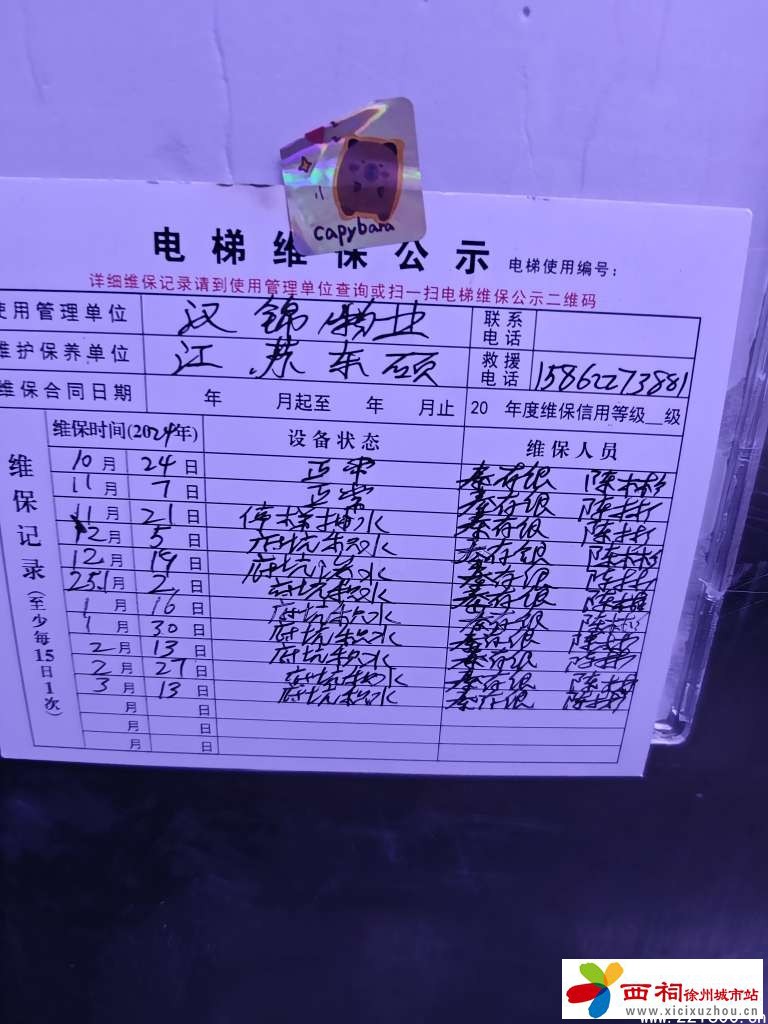 capybara
电梯维保公示 电梯使用编号：
详细维保记录请到使用管理单位查询或扫一扫电梯维保公示二维码
使用管理单位 汉锦物业 联系电话
维护保养单位 江苏东硕 救援电话 15862273881
维保合同日期 年 月起至 年 月止 20 年度维保信用等级__级
维保记录（至少每15日1次）
维保时间(2024年) 设备状态 维保人员
10月 24日 正常
11月 7日 正常
11月 21日 停梯抽水
12月 5日 底坑积水
12月 19日 底坑积水
25.1月 2日 底坑积水
1月 16日 底坑积水
1月 30日 底坑积水
2月 13日 底坑积水
2月 27日 底坑积水
3月 13日 底坑积水
月 日
月 日
月 日
西祠徐州城市站
www.xicixuzhou.cn